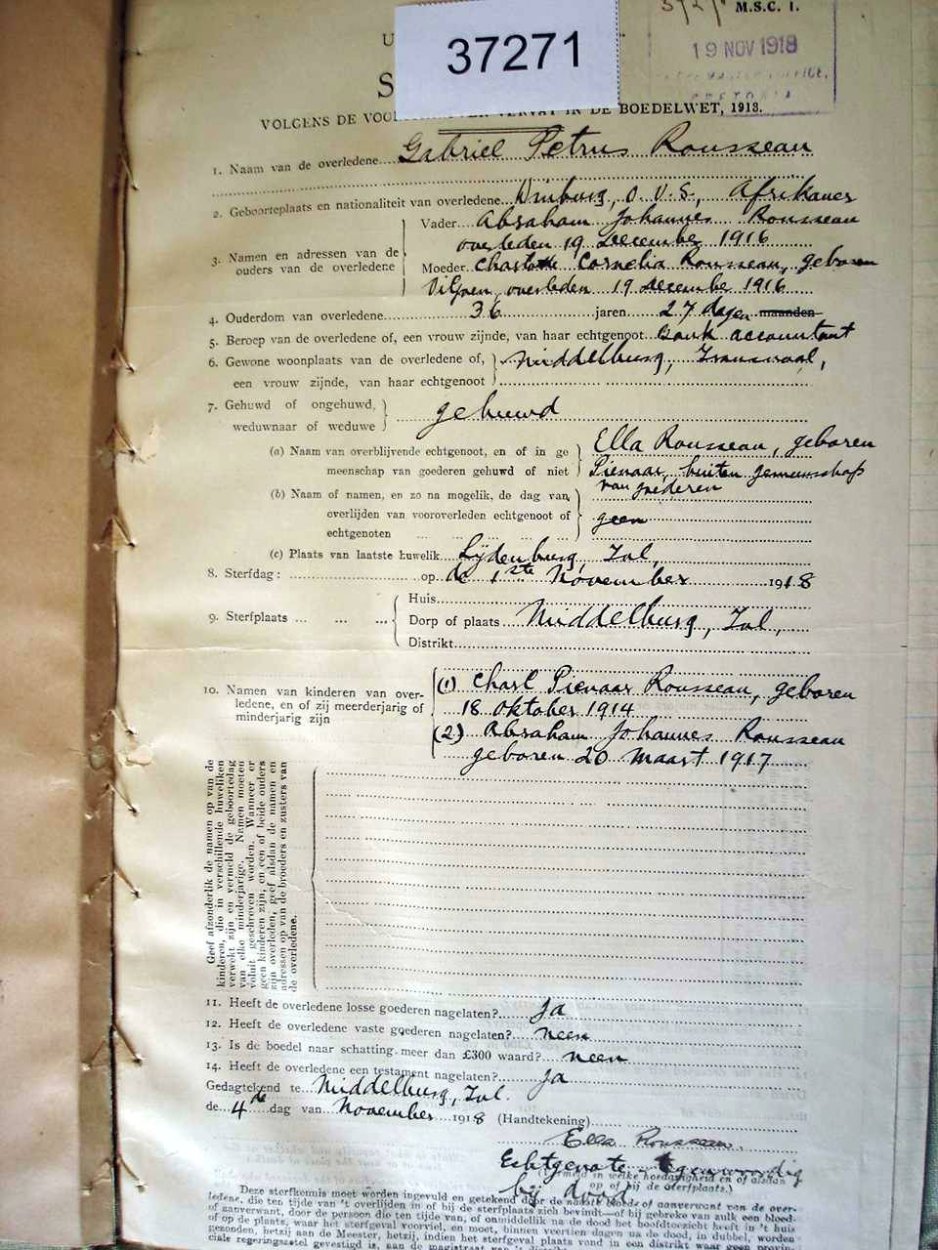 M.S.C. 1.
37271
19 NOV 1918
U
S
VOLGENS DE IN DE BOEDELWET, 1913.
1. Naam van de overledene Gabriel Petrus Rousseau
2. Geboorteplaats en nationaliteit van overledene Winburg, O.V.S., Afrikaner
3. Namen en adressen van de ouders van de overledene
Vader Abraham Johannes Rousseau
overleden 19 December 1916
Moeder Charlotte Cornelia Rousseau, geboren
Viljoen, overleden 19 December 1916
4. Ouderdom van overledene 36 jaren 27 dagen maanden
5. Beroep van de overledene of, een vrouw zijnde, van haar echtgenoot Bank accountant
6. Gewone woonplaats van de overledene of, Middelburg, Transvaal,
een vrouw zijnde, van haar echtgenoot
7. Gehuwd of ongehuwd, weduwnaar of weduwe gehuwd
(a) Naam van overblijvende echtgenoot, en of in ge
meenschap van goederen gehuwd of niet
Ella Rousseau, geboren
Pienaar, buiten gemeenschap
van goederen
(b) Naam of namen, en zo na mogelik, de dag van
overlijden van vooroverleden echtgenoot of
echtgenoten
geen
(c) Plaats van laatste huwelik Lydenburg, Tvl.
8. Sterfdag: op de 1ste November 1918
9. Sterfplaats
Huis
Dorp of plaats Middelburg, Tvl.,
Distrikt
10. Namen van kinderen van over-
ledene, en of zij meerderjarig of
minderjarig zijn
(1) Charl Pienaar Rousseau, geboren
18 Oktober 1914
(2) Abraham Johannes Rousseau
geboren 20 Maart 1917
Geef afzonderlik de namen op van de
kinderen, die in verschillende huweliken
verwekt zijn en vermeld de geboortedag
van elke minderjarige. Namen moeten
voluit geschreven worden. Wanneer er
geen kinderen zijn, en een of beide ouders
zijn overleden, geef alsdan de namen en
adressen op van de broeders en zusters van
de overledene.
11. Heeft de overledene losse goederen nagelaten? Ja
12. Heeft de overledene vaste goederen nagelaten? neen
13. Is de boedel naar schatting meer dan £300 waard? neen
14. Heeft de overledene een testament nagelaten? Ja
Gedagtekend te Middelburg, Tvl.
de 4de dag van November 1918 (Handtekening)
Ella Rousseau
Echtgenote tegenwoordig
bij dood
op of bij de sterfplaats.)
Deze sterfkennis moet worden ingevuld en getekend door de naaste bloed- of aanverwant van de over-
ledene, die ten tijde van 't overlijden in of bij de sterfplaats zich bevindt—of bij gebreke van zulk een bloed-
of aanverwant, door de persoon die ten tijde van, of onmiddellik na de dood het hoofdtoezicht heeft in 't huis
of op de plaats, waar het sterfgeval voorviel, en moet, binnen veertien dagen na de dood, in dubbel, worden
gezonden, hetzij aan de Meester, hetzij, indien het sterfgeval plaats vond in een distrikt waar geen